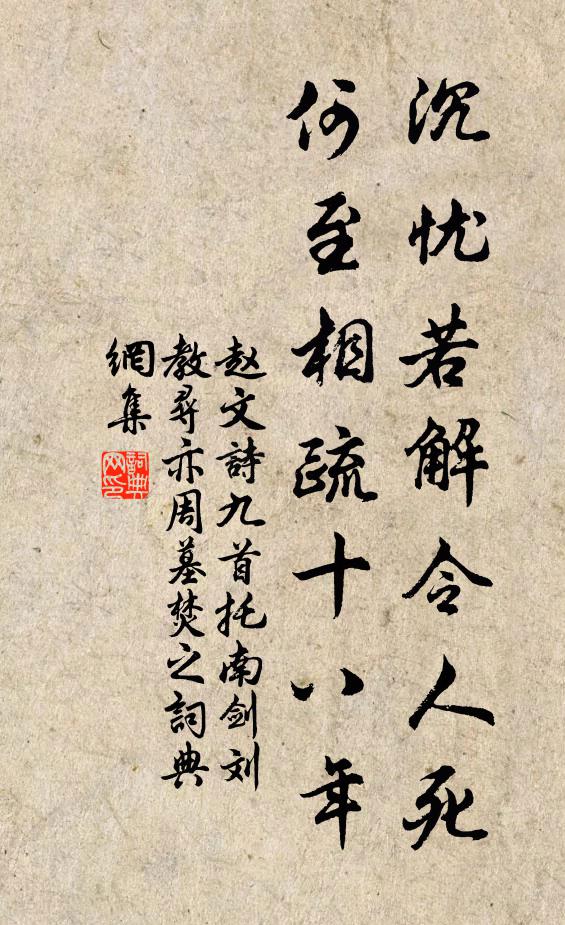 沉忧若解令人死
何至相疏十八年
赵文詩九首托南剑刘
教尋亦周墓焚之詞典
網集
詞典網印